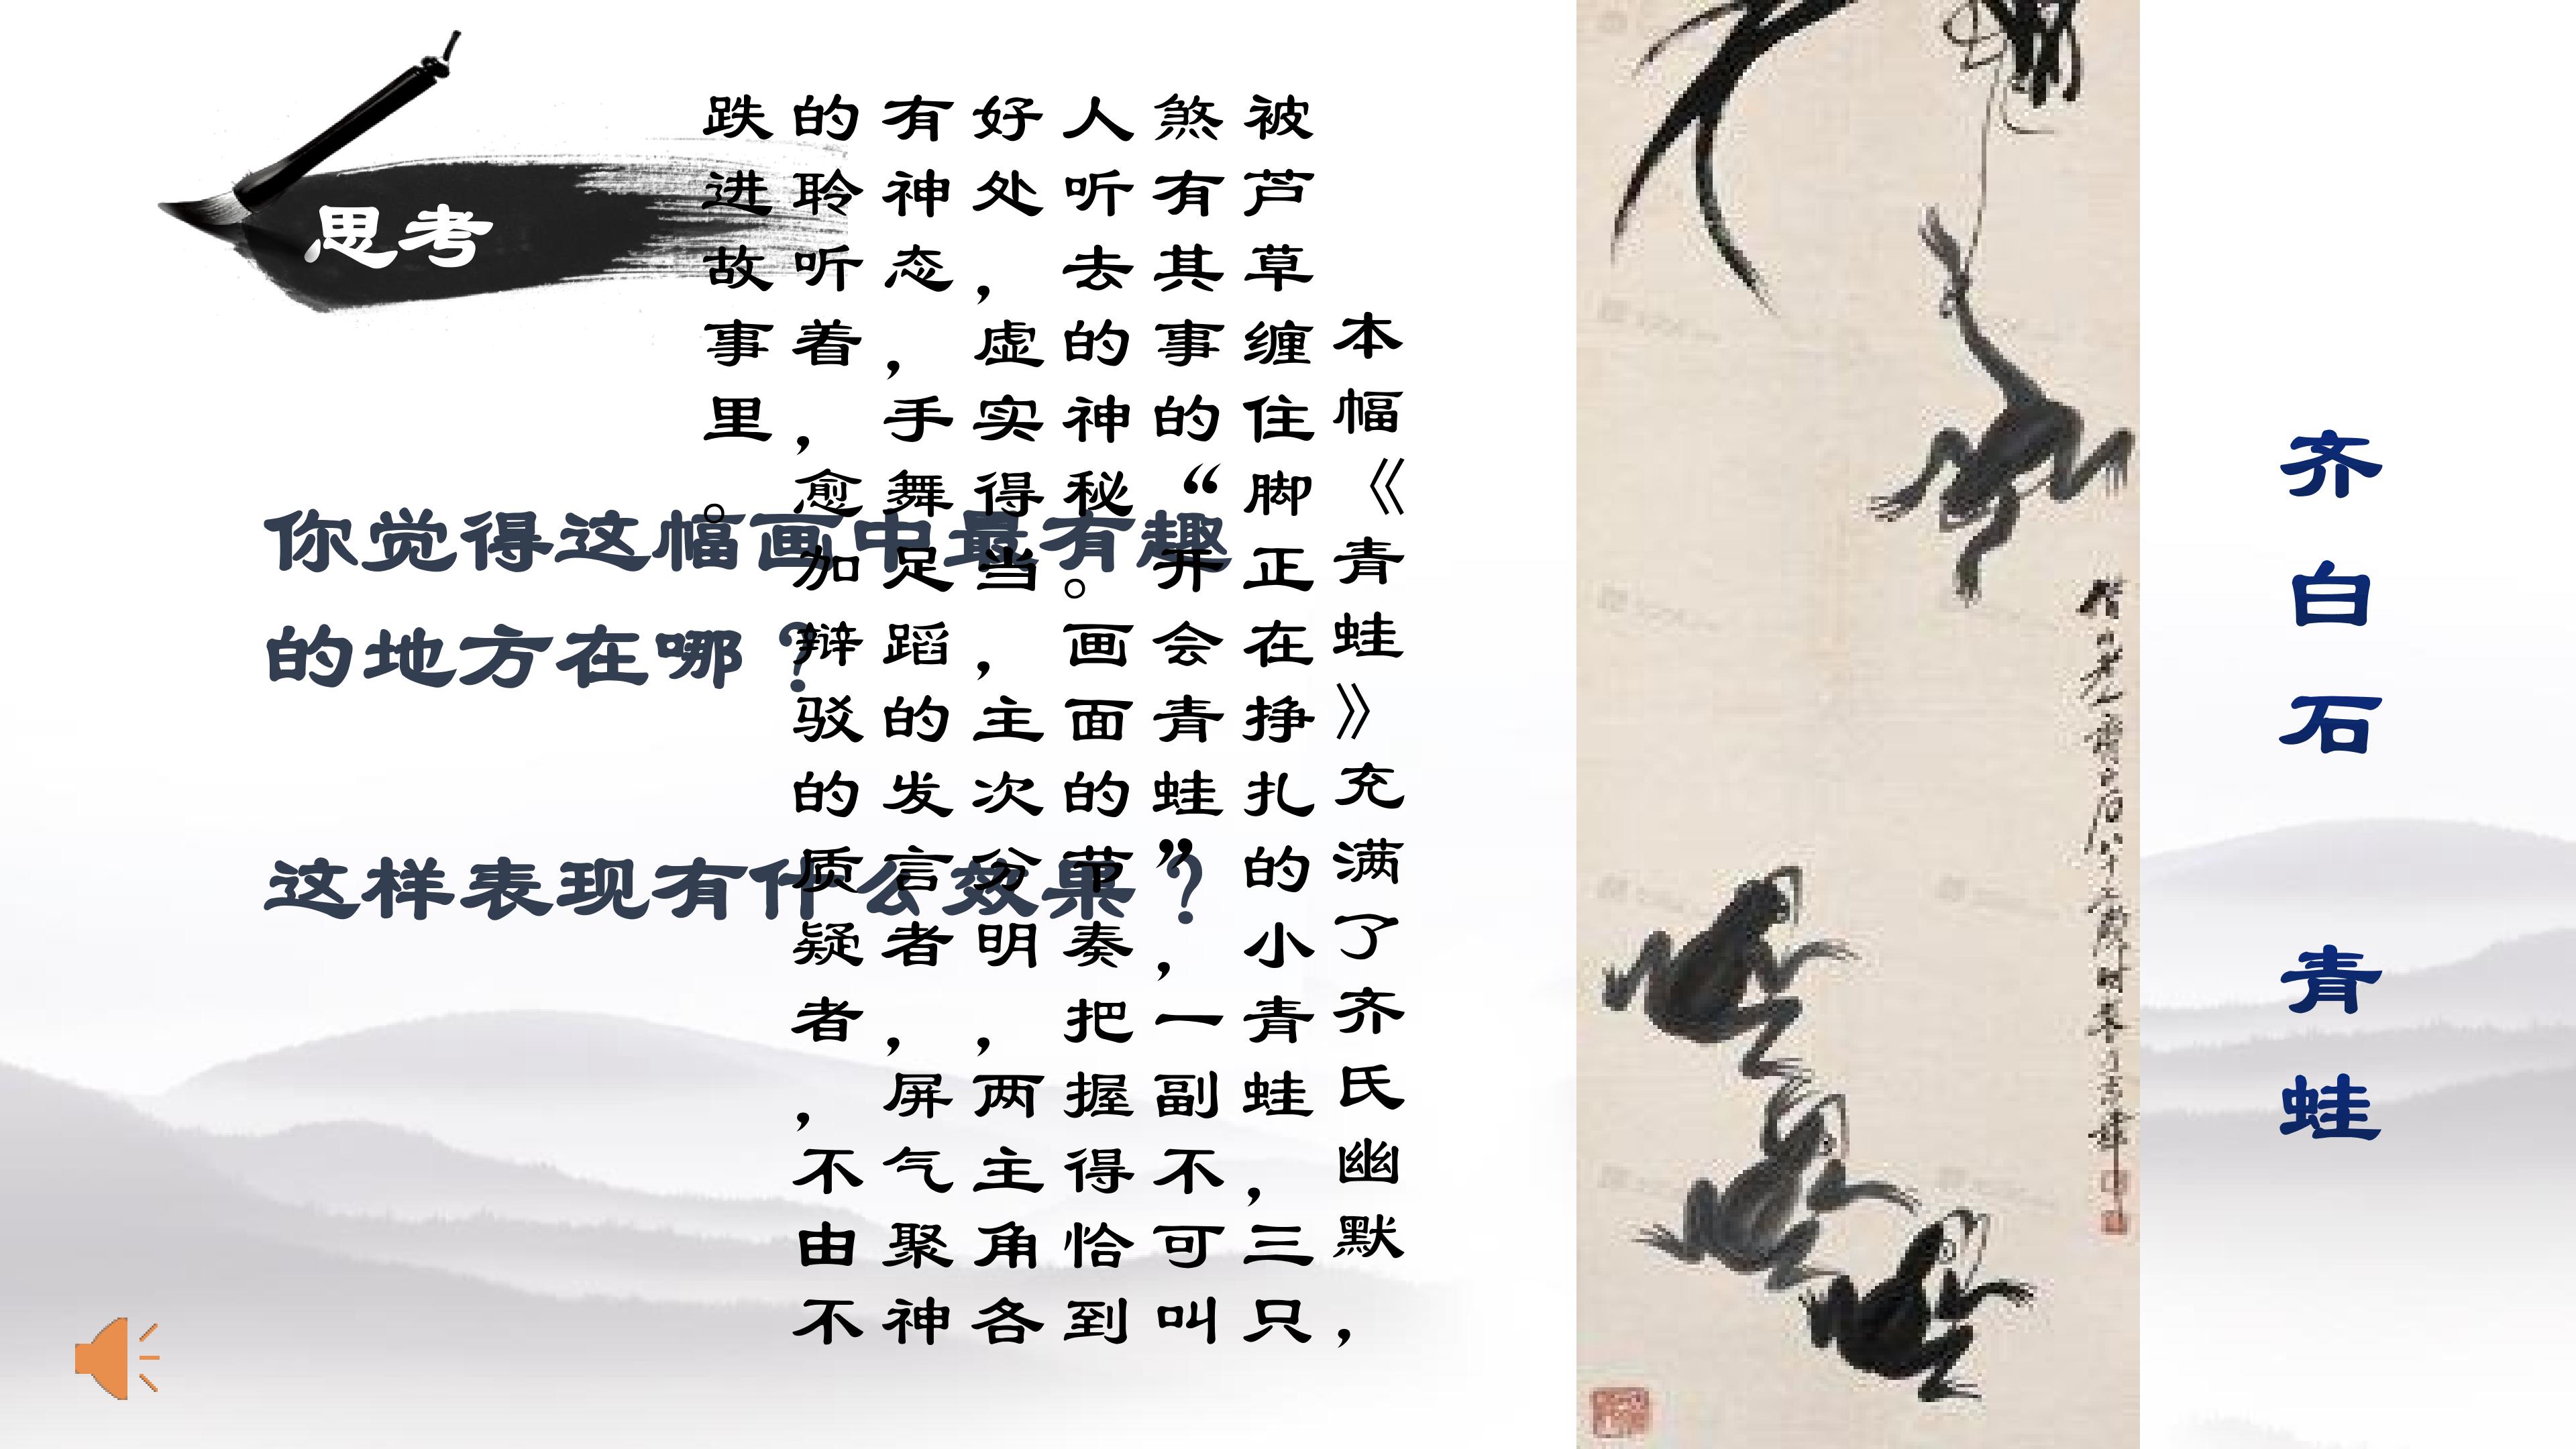 思考
你觉得这幅画中最有趣
的地方在哪？
这样表现有什么效果？
本幅《青蛙》充满了齐氏幽默，
被芦草缠住脚正在挣扎的小青蛙，三只
煞有其事的“开会青蛙”，一副不可叫
人听去的神秘。画面的节奏把握得恰到
好处，虚实得当，主次分明，两主角各
有神态，手舞足蹈的发言者，屏气聚神
的聆听着，愈加辩驳的质疑者，不由不
跌进故事里。
齐白石 青蛙